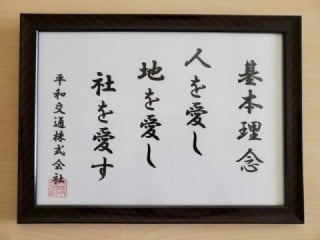 基本理念
人を愛し
地を愛し
社を愛す
平和交通株式会社